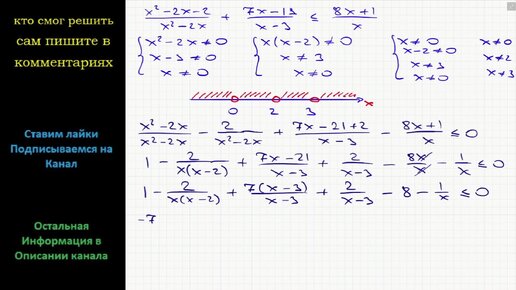 кто смог решить
сам пишите в
комментариях
Ставим лайки
Подписываемся на
Канал
Остальная
Информация в
Описании канала
(x²-2x-2)/(x²-2x) + (7x-13)/(x-3) ≤ (8x+1)/x
{ x²-2x≠0 { x(x-2)≠0 { x≠0 x≠0
x-3≠0 x≠3 x-2≠0 x≠2
x≠0 x≠0 x≠3 x≠3
x≠0
0 2 3 x
(x²-2x)/(x²-2x) - 2/(x²-2x) + (7x-21+2)/(x-3) - (8x+1)/x ≤ 0
1 - 2/(x(x-2)) + (7x-21)/(x-3) + 2/(x-3) - 8x/x - 1/x ≤ 0
1 - 2/(x(x-2)) + 7(x-3)/(x-3) + 2/(x-3) - 8 - 1/x ≤ 0
-7